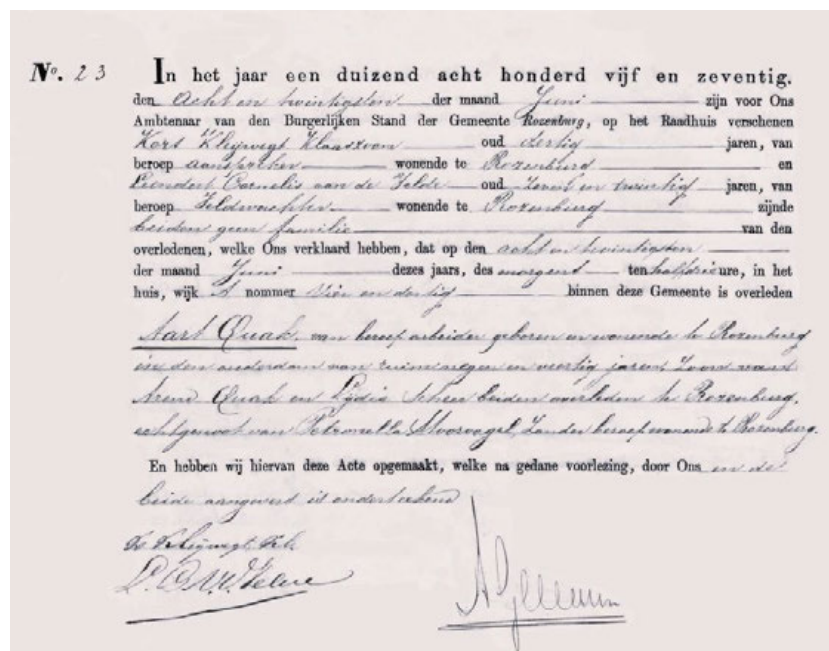 No. 23
In het jaar een duizend acht honderd vijf en zeventig.
den acht en twintigsten der maand Juni zijn voor Ons
Ambtenaar van den Burgerlijken Stand der Gemeente Rozenburg, op het Raadhuis verschenen
Kors Kleijwegt Klaaszoon oud dertig jaren, van
beroep aanspreker wonende te Rozenburg en
Leendert Cornelis van de Velde oud zeven en twintig jaren, van
beroep Veldwachter wonende te Rozenburg zijnde
beiden geen familie van den
overledenen, welke Ons verklaard hebben, dat op den acht en twintigsten
der maand Juni dezes jaars, des morgens ten half drie ure, in het
huis, wijk nommer vier en dertig binnen deze Gemeente is overleden
Aart Quak, van beroep arbeider geboren en wonende te Rozenburg
in den ouderdom van ruim negen en veertig jaren, Zoon van
Arend Quak en Lydia beiden overleden te Rozenburg,
echtgenoot van Petronella Moorvogel, Zonder beroep wonende te Rozenburg.
En hebben wij hiervan deze Acte opgemaakt, welke na gedane voorlezing, door Ons en de
beide aangevers is onderteekend
Kleijwegt